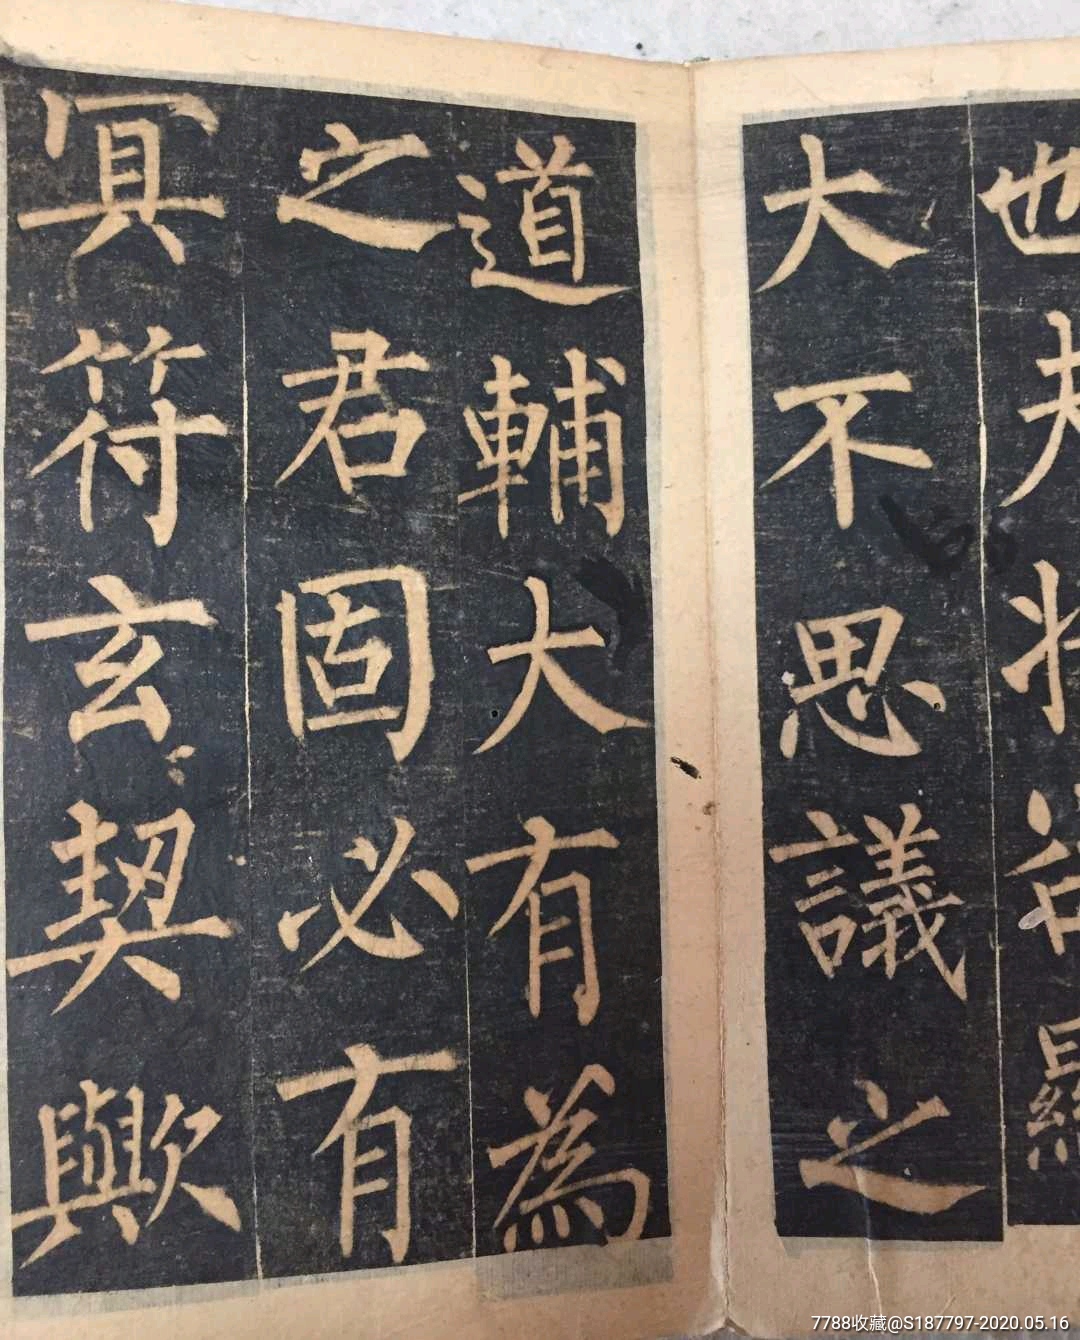 也夫
大不思議之
道輔大有為
之君固必有
冥符玄契歟
7788收藏@S187797-2020.05.16